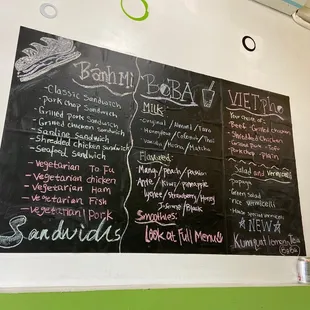 BánhMì
- Classic Sandwich
- Pork chop Sandwich
- Grilled pork Sandwich
- Grilled chicken sandwich
- Sardine Sandwich
- Shredded chicken sandwich
- Seafood Sandwich
- Vegetarian To Fu
- Vegetarian chicken
- Vegetarian Ham
- Vegetarian Fish
- Vegetarian Pork
Sandwichs
BOBA
Milk:
Original / Almond / Taro
Honeydew /
/ Matcha
Flavoured:
Mang / peach / passion
Kiwi / pineapple
Lychee / strawberry / Honey
Jasmine / Black
Smoothies:
Look at Full Menu
VIET pho
Your choice of:
Beef Grilled chicken
Shredded Chicken
Grilled Pork - Tofu
Pork chop / Plain
Salad and Vermicelli
- Papaya
- Green salad
- Rice vermicelli
- House special vermicelli
☆NEW☆
Kumquat Lemon Tea